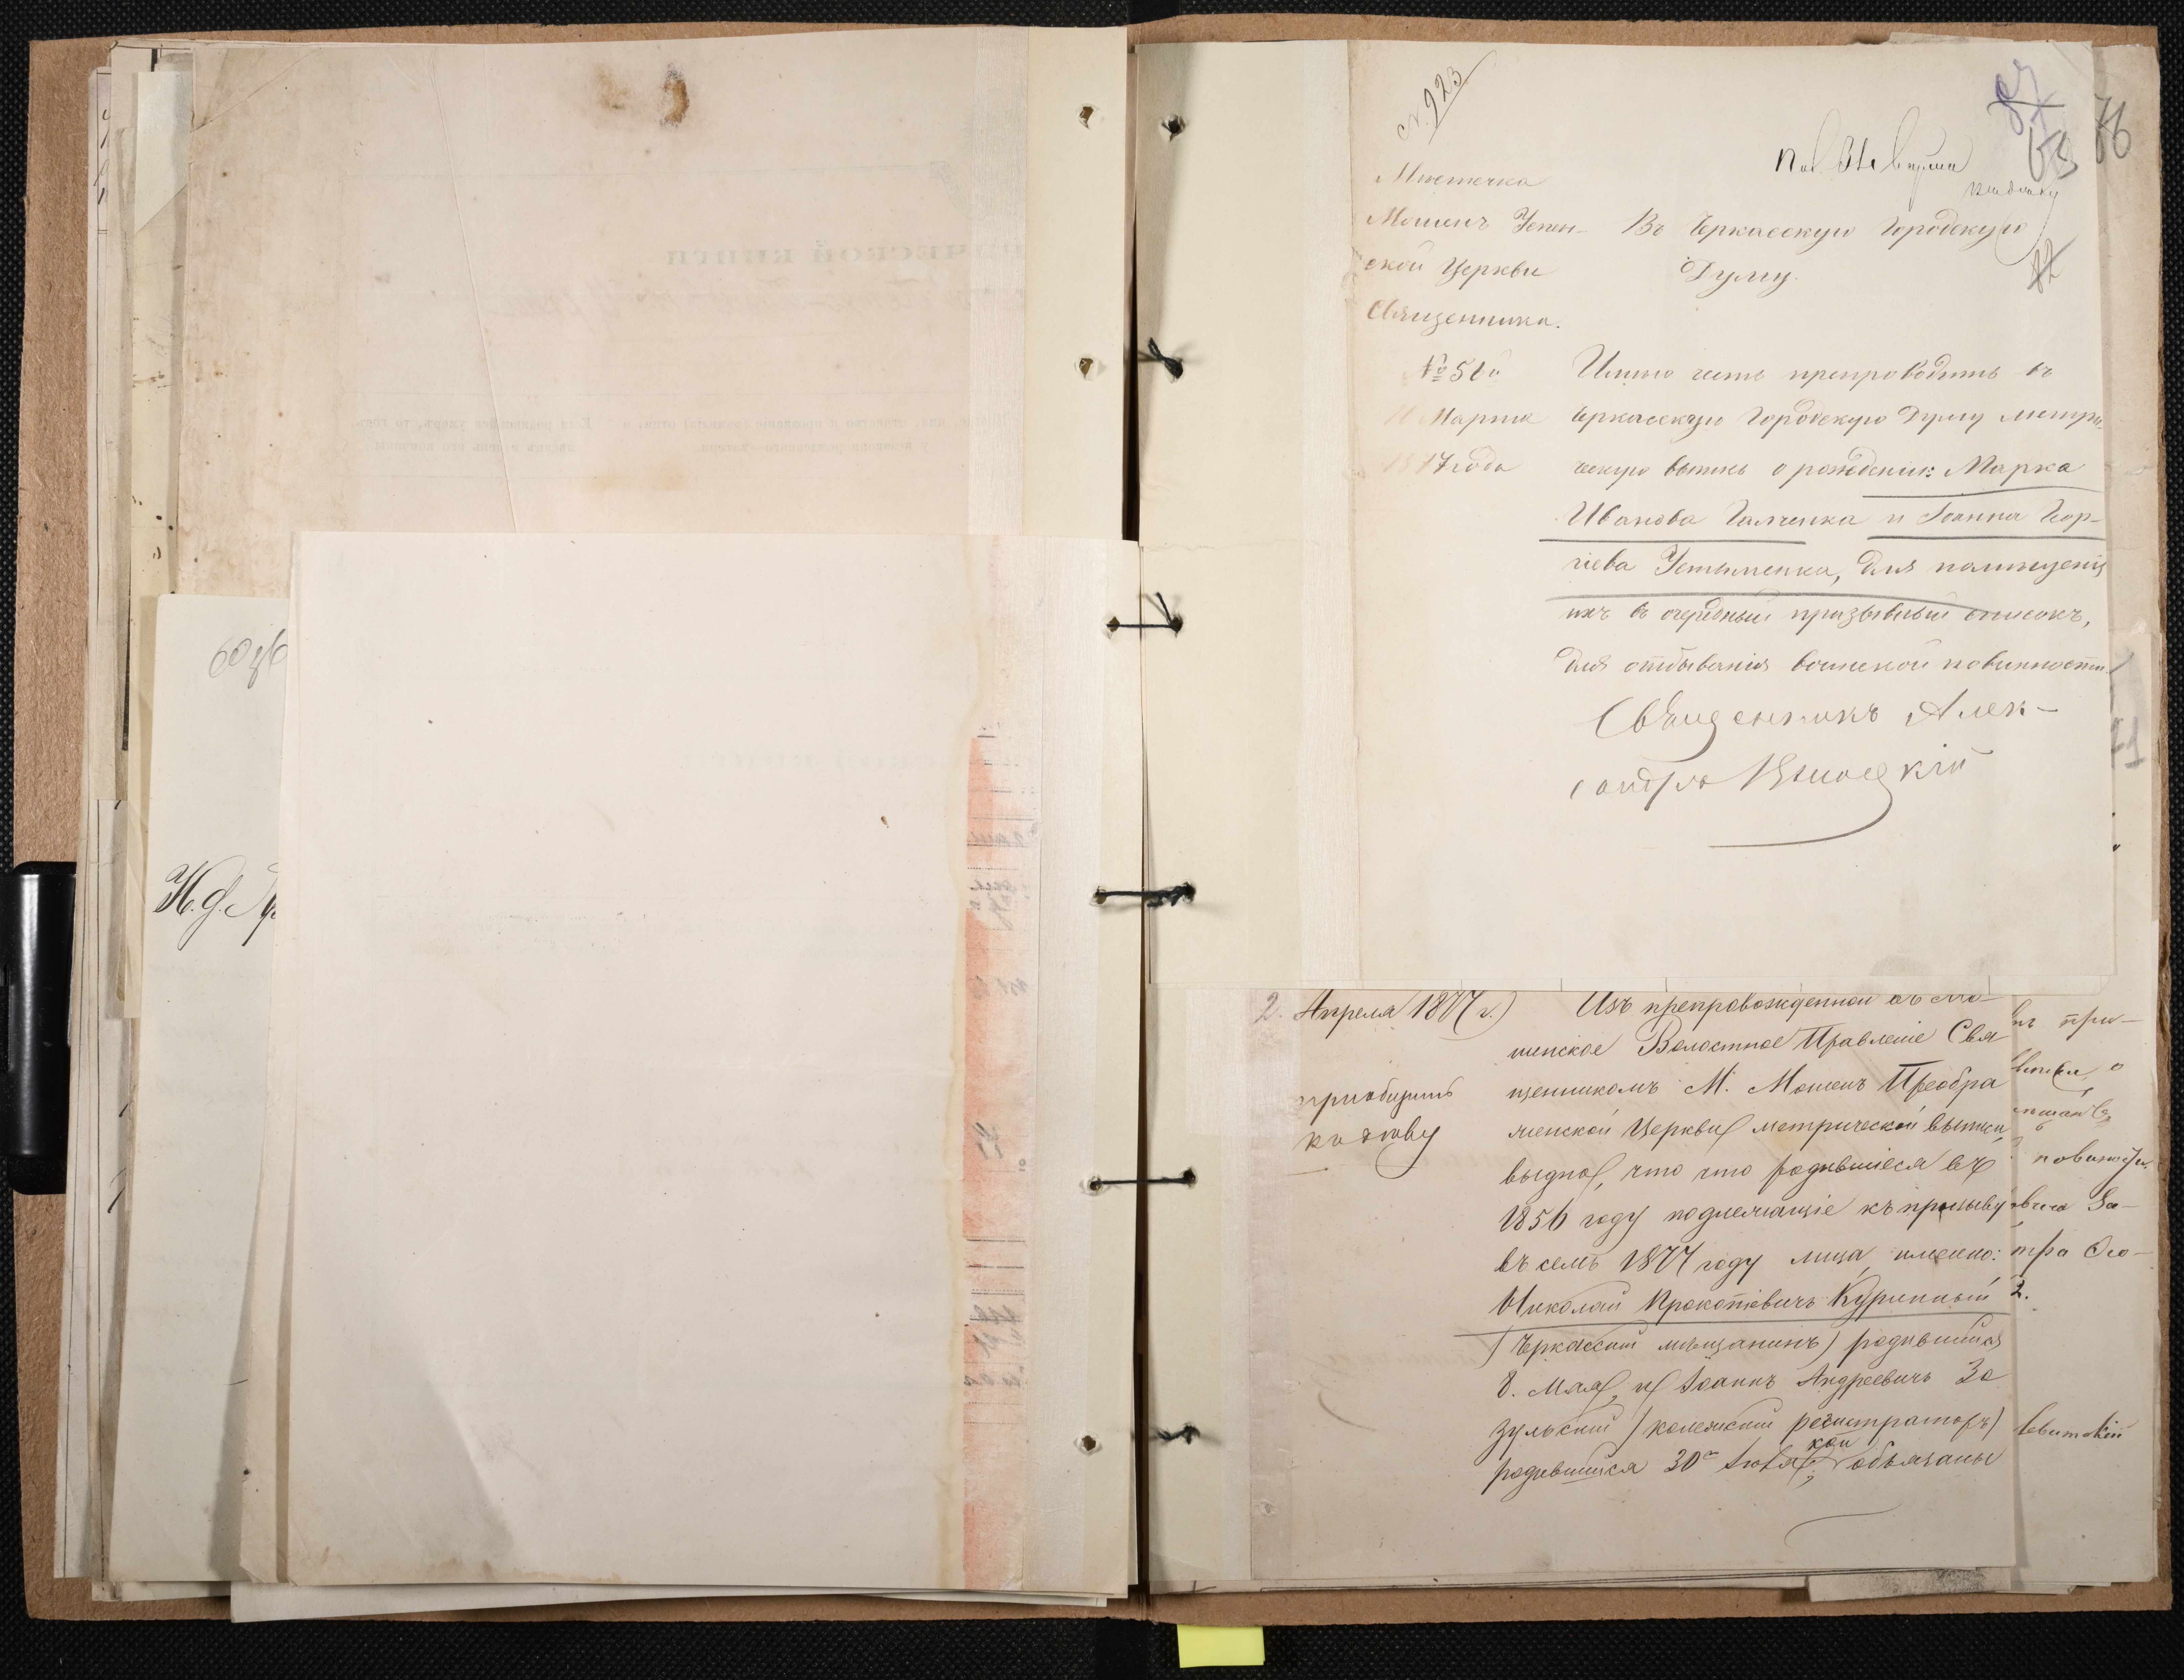 № 923
87
63
76
82
Местечка
Мошенъ Успен-
ской Церкви
Священника.
№ 51й
Марта
1877 года
Въ Черкасскую Городскую
Думу.
Имѣю честь препроводить въ
Черкасскую Городскую Думу метри-
ческую выпись о рожденіи: Марка
Иванова Галченка и Іоанна Геор-
гіева Устименка, для помѣщенія
ихъ въ очередный призывный списокъ,
для отбыванія воинской повинности.
Священникъ Алек-
сандръ
71
2. Апреля 1877 г.)
приобщить
къ дѣлу
Изъ препровожденной въ Мо-
шенское Волостное Правленіе Свя
щенникомъ М. Мошенъ Преобра
женской Церкви метрической выписи,
выдно, что что родившіеся въ
1856 году подлежащіе къ призыву
въ семъ 1877 году лица, именно:
Николай Прокопіевичъ Куринный
(Черкаскій мѣщанинъ) родившийся
8. Мая, и Іоаннъ Андреевичъ За
зульскій (колежский регистраторъ)
родившийся 30го Іюля; кои обязаны
при-
о
повиности.
За-
тра
2.
Левитскій
6036
И. д.